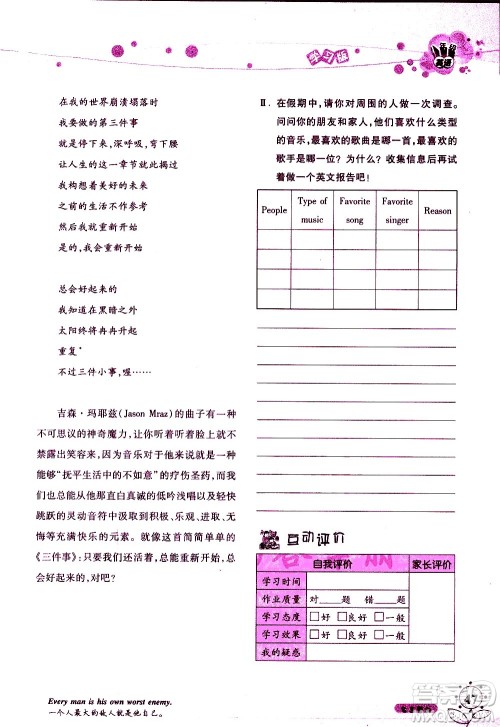 学习版
英语
在我的世界崩溃塌落时
我要做的第三件事
就是停下来,深呼吸,弯下腰
让人生的这一章节就此揭过
我构想着美好的未来
之前的生活不作参考
然后我就重新开始
是的,我会重新开始
总会好起来的
我知道在黑暗之外
太阳终将冉冉升起
重复*
不过三件小事,喔……
吉森·玛耶兹(Jason Mraz)的曲子有一种
不可思议的神奇魔力,让你听着听着脸上就不
禁露出笑容来,因为音乐对于他来说就是一种
能够“抚平生活中的不如意”的疗伤圣药,于是
大家也从他那直白真诚的低吟浅唱以及轻快
跳跃的灵动音符中汲取到积极、乐观、进取、无
悔等有关快乐的元素。就像这首简简单单的
《三件事》:只要我们还活着,总能重新开始,总
会好起来的,对吧?
Ⅱ. 在假期中,请你对周围的人做一次调查。
问问你的朋友和家人,他们喜欢什么类型
的音乐,最喜欢的歌曲是哪一首,最喜欢的
歌手是哪一位?为什么?收集信息后再试
着做一个英文报告吧!
People Type of music Favorite song Favorite singer Reason
互动评价
自我评价 家长评价
学习时间
作业质量 对__题 错__题
学习态度 □好 □良好 □一般
学习效果 □好 □良好 □一般
我的疑惑
Every man is his own worst enemy.
一个人最大的敌人就是他自己。
47